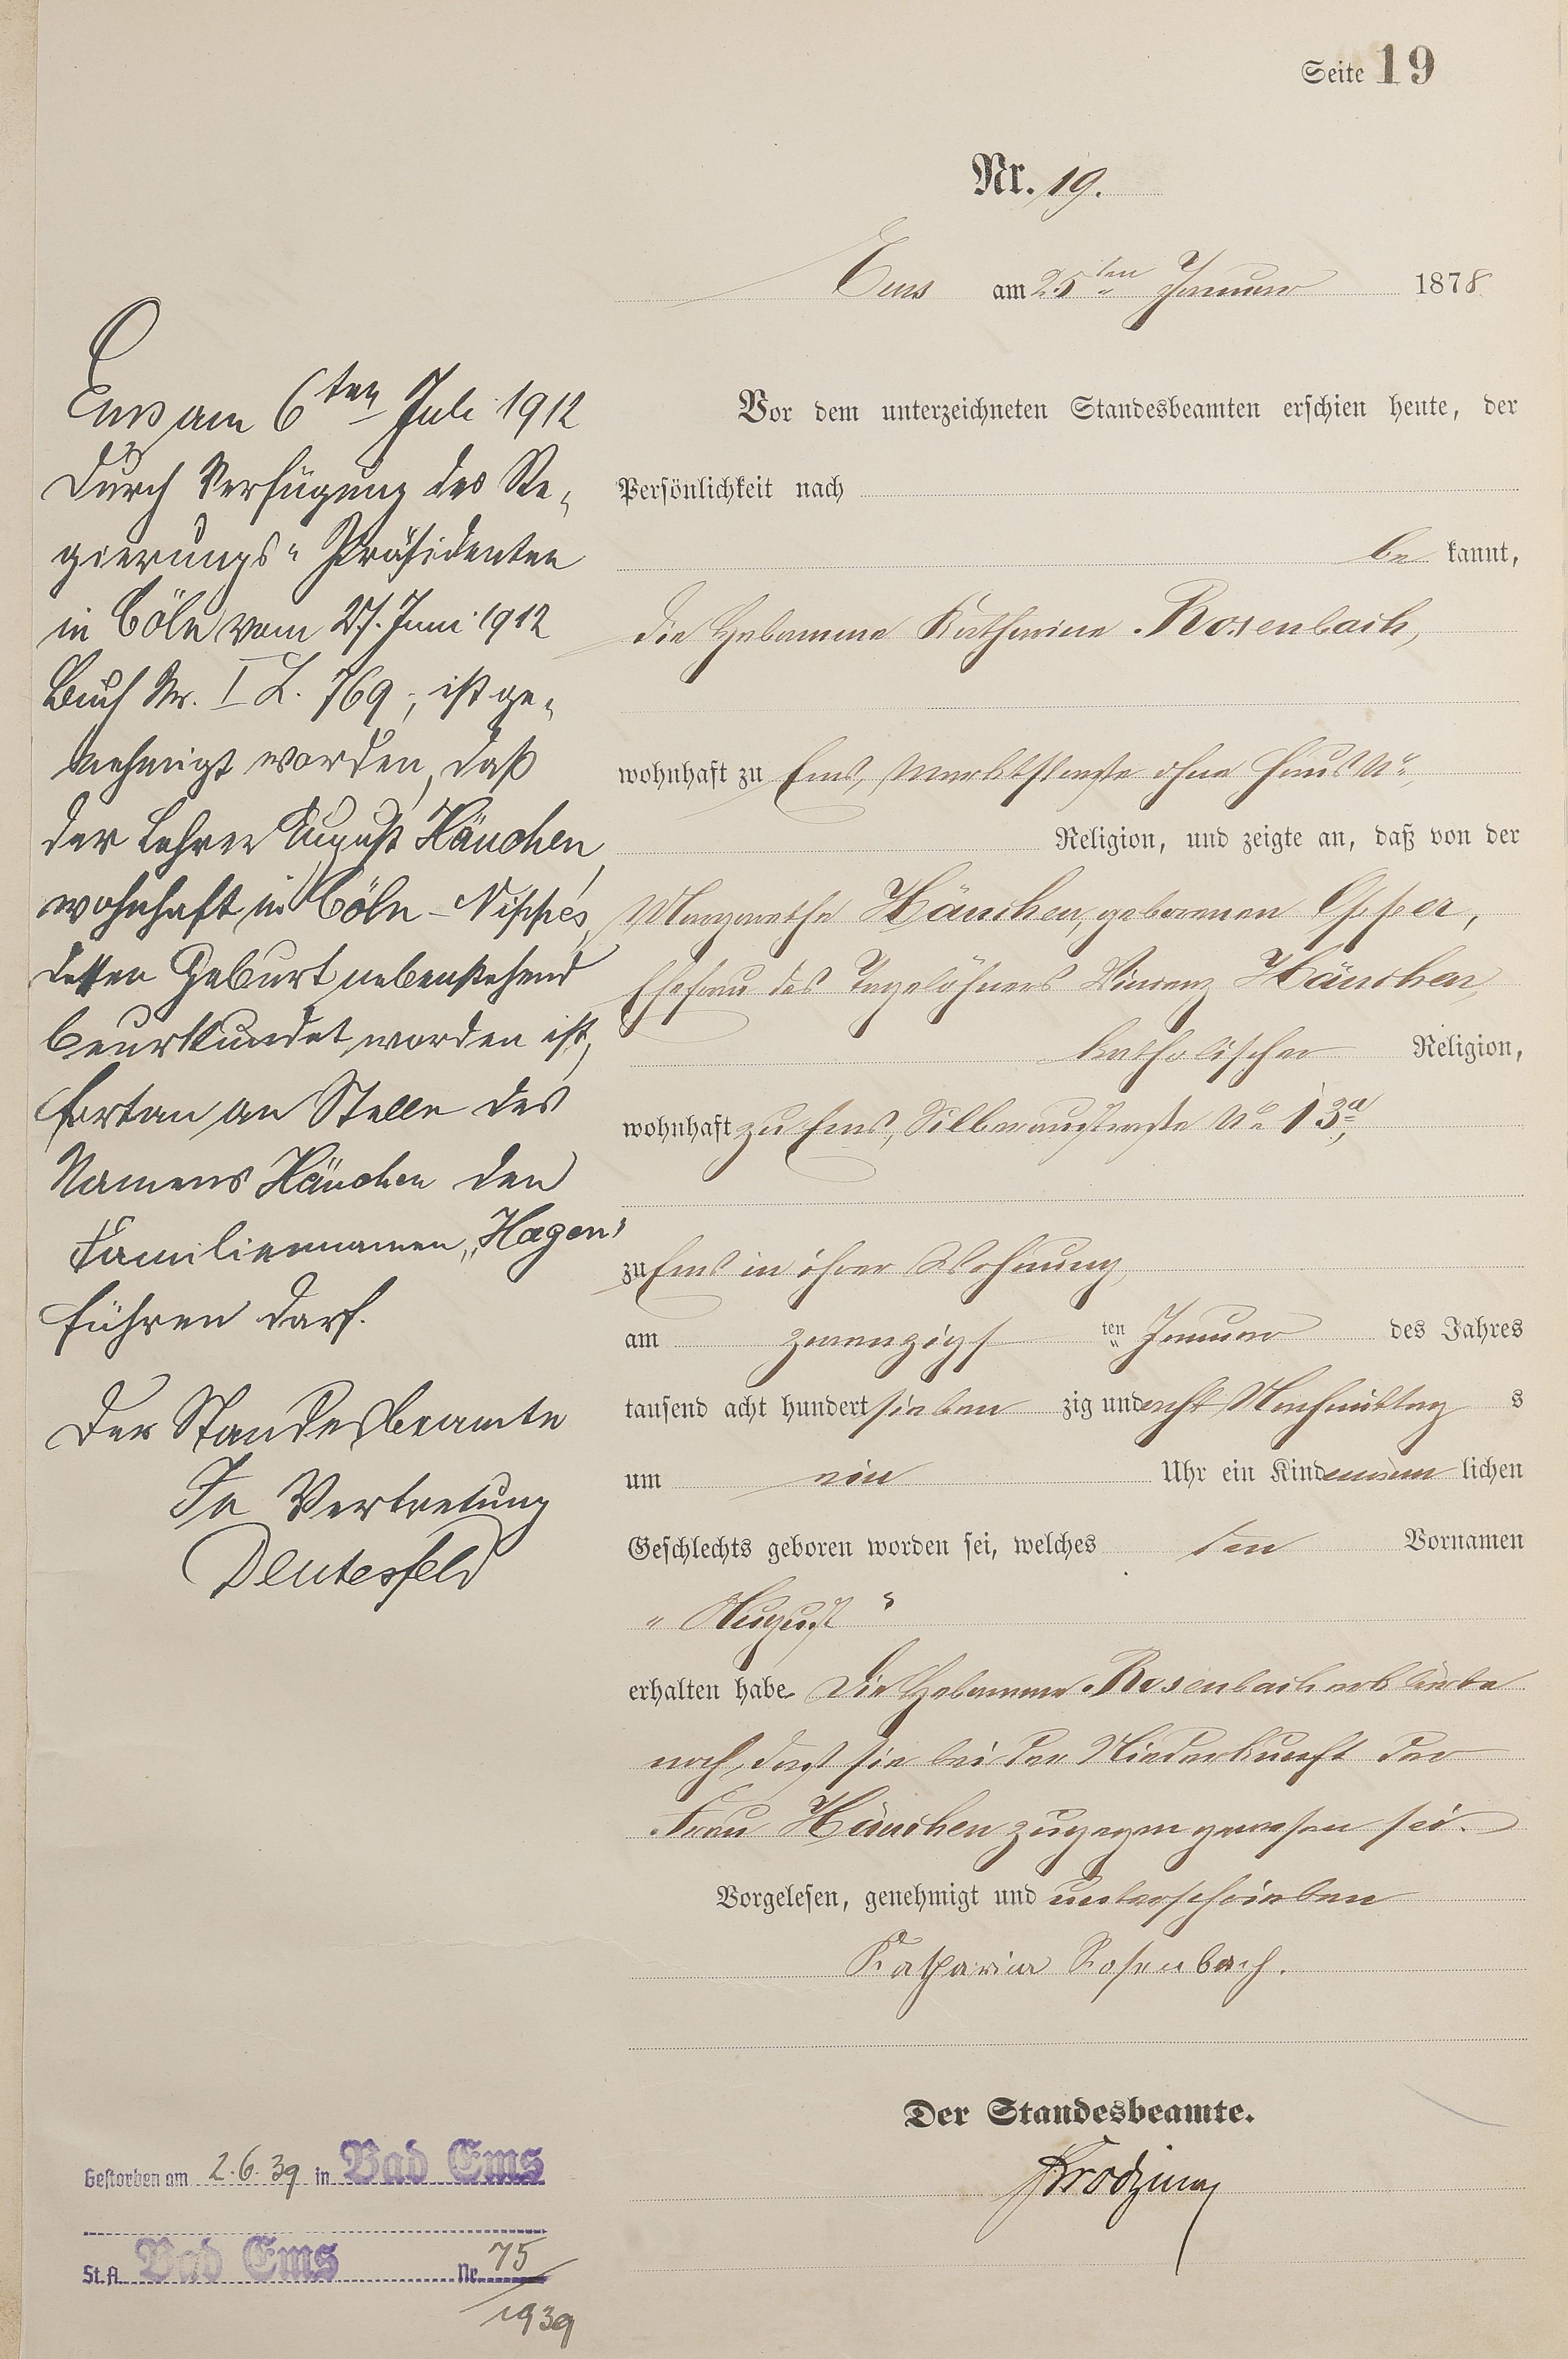 Seite 19
Nr. 19.
Ems am 25ten Januar 1878
Vor dem unterzeichneten Standesbeamten erschien heute, der
Persönlichkeit nach
be kannt,
die Hebamme Katharina Rosenbach,
wohnhaft zu Ems, Marktstraße ohne Haus No,
Religion, und zeigte an, daß von der
Margarethe Häuchen, geborenen Opper,
Ehefrau des Tagelöhners Vincenz Häuchen,
katholischer Religion,
wohnhaft zu Ems, Silberaustraße No 13a,
zu Ems in ihrer Wohnung,
am zwanzigs ten Januar des Jahres
tausend acht hundert sieben zig und acht Nachmittag s
um ein Uhr ein Kind männ lichen
Geschlechts geboren worden sei, welches den Vornamen
„August“
erhalten habe. Die Hebamme Rosenbach erklärte
noch, daß sie bei der Niederkunft der
Frau Häuchen zugegen gewesen sei.
Vorgelesen, genehmigt und unterschrieben
Katharina Rosenbach.
Der Standesbeamte.
Ems am 6ten Juli 1912
Durch Verfügung des Re-
gierungs-Präsidenten
in Cöln vom 27. Juni 1912
Buch Nr. I L. 769, ist ge-
nehmigt worden, daß
der Lehrer August Häuchen,
wohnhaft in Cöln-Nippes,
dessen Geburt nebenstehend
beurkundet worden ist,
fortan an Stelle des
Namens Häuchen den
Familiennamen „Hagen“
führen darf.
Der Standesbeamte
In Vertretung
Deutesfeld
Gestorben am 2.6.39 in Bad Ems
St.A. Bad Ems Nr. 75
1939